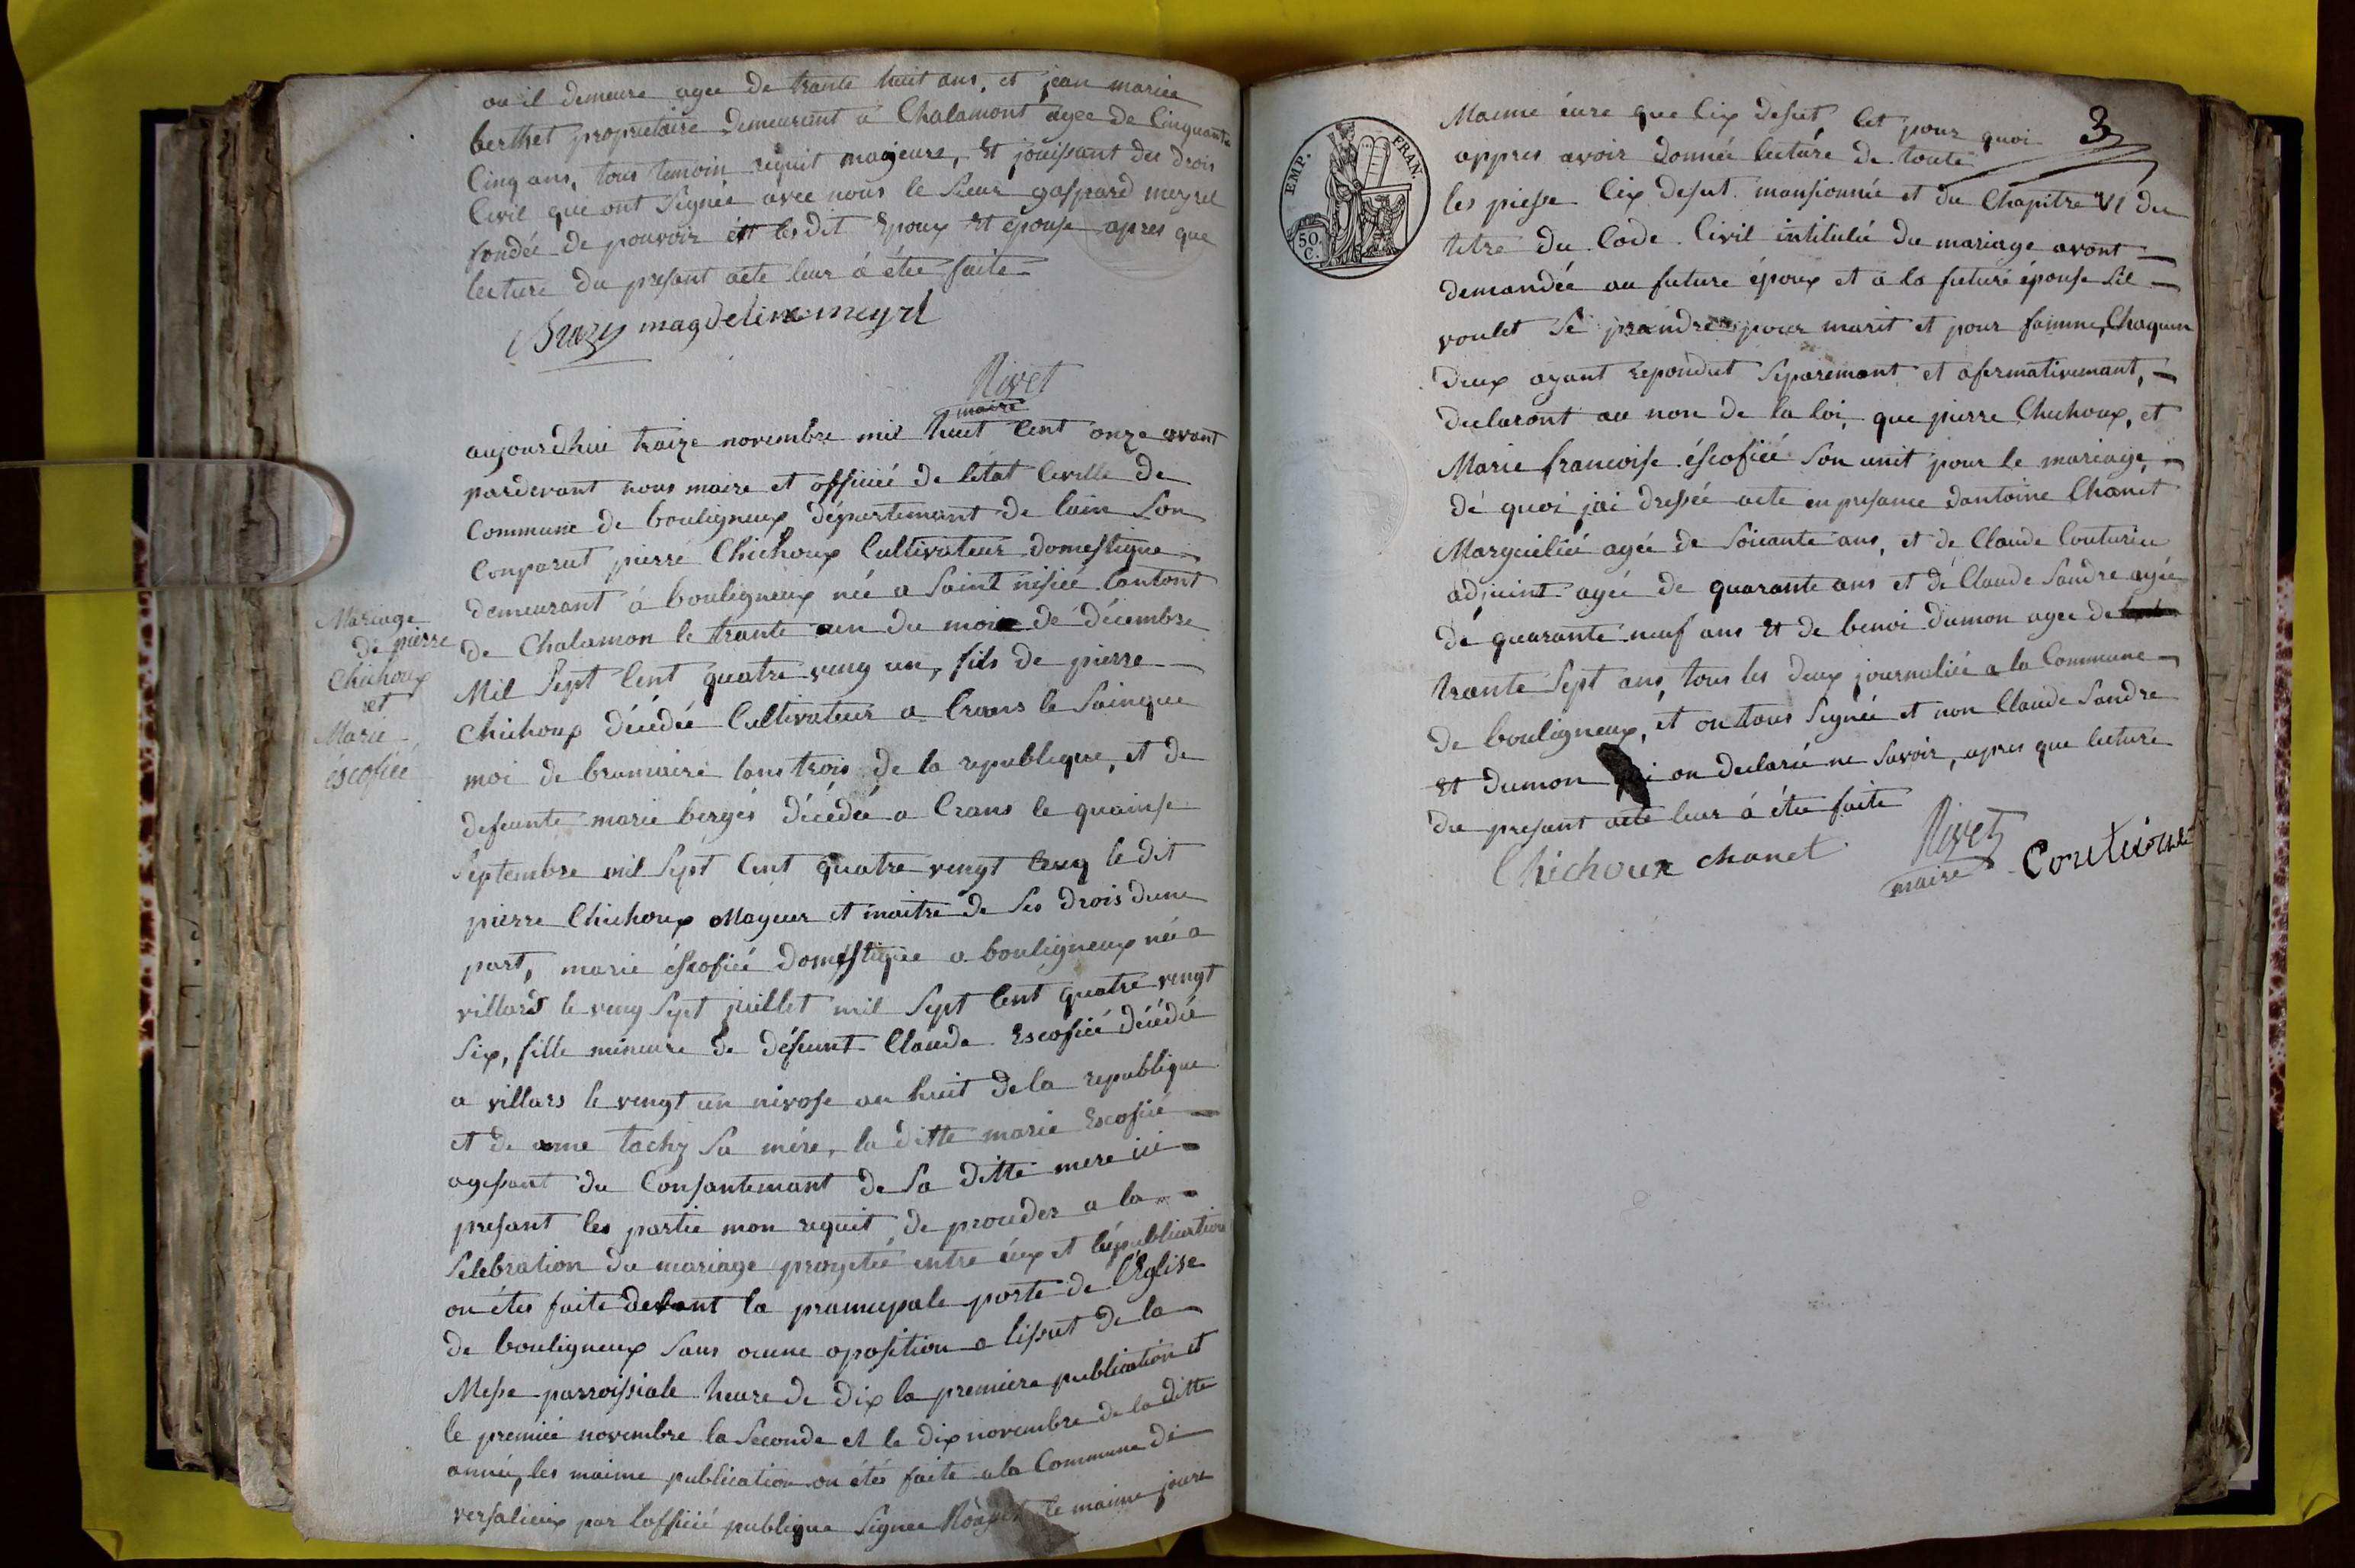 ou il demeure agee de trante huit ans, et jean mariee
berthet proprietaire demeurant a Chalamont agee de Cinquante
Cinq ans, tous temoin requit majeure, et jouissant du drois
Civil qui ont Signée avec nous le Sieur gaspard meyrel
fondée de pouvoir et lesdit Epoux et epouse apres que
lecture du presant acte leur à étée faite
magdeline meyrel
Rivet
maire
aujourdhui traize novembre mil huit Cent onze avant
pardevant nous maire et officiéé de létat Civille de
Commune de bouligneux, departemant de lain Son
Conparut pierre Chichoux Cultivateur domestique
demeurant à bouligneux née a Saint nisiée Cantont
de Chalamon le trante un du mois de décembre
Mil Sept Cent quatre ving un, fils de pierre
Chichoux décédée Cultivateur a Crans le Sainque
moi de brumaire lans trois de la republique, et de
defeunte marie bergés décédée a Crans le quainse
Septembre mil Sept Cent quatre vingt Cinq ledit
pierre Chichoux Mageur et maitre de Ses drois dune
part, marie éscofiéé doméstique a bouligneux née a
villards le ving Sept juillet mil Sept Cent quatre vingt
Six, fille mineure de défeunt Claude Escofiéé décédée
a villars le vingt un nivose an huit de la republique
et de anne tachy Sa mére, la ditte marie Escofiéé
agissant du Consantemant de Sa ditte mere ici
presant les partie mon requit de proceder a la
Selebration du mariage progetée entre éux et lépublication
on étes faite devant la prancipale porte de l'Eglise
de bouligneux Sans ocune oposition a lissut de la
Messe parroissiale heure de dix la premiere publication et
le premiéé novembre la Seconde et le dix novembre de la ditte
année, les maime publication on étés faite a la Commune de
versalieux par lofficiéé publique Signee le maime joure
Mariage
de pierre
Chichoux
et
Marie
éscofiéé
EMP. FRAN.
50. C.
3
Maime éure que Cix desut Cet pour quoi
appres avoir donnée lecture de toute
les piesse Cix desut mansionnée et du Chapitre VI du
titre du Code Civil intitulée du mariage avont
demandée au future époux et a la future épouse Sil
voulet Se prandre pour marit et pour famme, Chaquun
deux ayant repondut Separemant et afirmativemant,
declaront au non de la loi, que pierre Chichoux, et
Marie francoise éscofiéé Son unit pour le mariage,
dé quoi jai dressée acte en presance dantoine Chanet
Marguiliéé agée de Soicante ans, et de Claude Couturie
adjuint agée de quarante ans et dé Claude Sandre agée
dé quarante neuf ans et de benoi dumon agee de
trante Sept ans, tous les deux journaliéé a la Commune
de bouligneux, et on tous Signée et non Claude Sandre
et dumon qui on declarée ne Savoir, apres que lecture
du presant acte leur à étée faite
Chichoux chanet
Rivet
maire